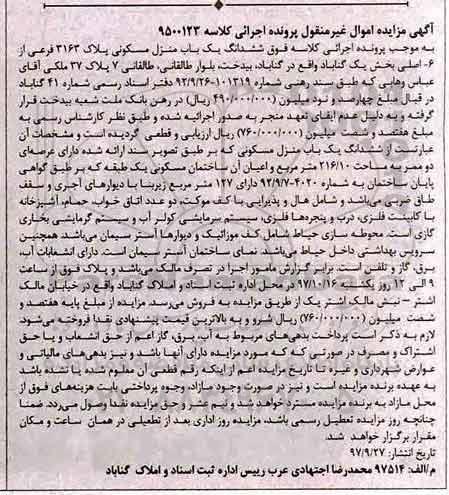 آگهی مزایده اموال غیرمنقول پرونده اجرائی کلاسه ۹۵۰۰۱۲۳
به موجب پرونده اجرائی کلاسه فوق ششدانگ یک باب منزل مسکونی پلاک ۳۱۶۳ فرعی از
۶- اصلی بخش یک گناباد واقع در گناباد، بیدخت، بلوار طالقانی، طالقانی ۷ پلاک ۳۷ ملکی آقای
عباس وهابی که طبق سند رهنی شماره ۱۰۱۳۱۹-۹۲/۹/۲۶ دفتر اسناد رسمی شماره ۴۱ گناباد
در قبال مبلغ چهارصد و نود میلیون (۴۹۰/۰۰۰/۰۰۰ ریال) در رهن بانک ملت شعبه بیدخت قرار
گرفته و به دلیل عدم ایفای تعهد منجر به صدور اجرائیه شده و طبق نظر کارشناس رسمی به
مبلغ هفتصد و شصت میلیون (۷۶۰/۰۰۰/۰۰۰ ریال) ارزیابی و قطعی گردیده است و مشخصات آن
عبارتست از ششدانگ یک باب منزل مسکونی که بر طبق تصویر سند ارائه شده دارای عرصه‌ای
دو ممر به مساحت ۲۱۶/۱۰ متر مربع و اعیان آن ساختمان مسکونی یک طبقه که بر طبق گواهی
پایان ساختمان به شماره ۴۰۲۰-۹۲/۹/۷ دارای ۱۲۷ متر مربع زیربنا با دیوارهای آجری و سقف
طاق ضربی می‌باشد و شامل هال و پذیرایی با کف موکت، دو عدد اتاق خواب، حمام، آشپزخانه
با کابینت فلزی، درب و پنجره‌ها فلزی، سیستم سرمایشی کولر آب و سیستم گرمایشی بخاری
گازی است. محوطه سازی حیاط شامل کف موزائیک و دیوارها آستر سیمان می‌باشد. همچنین
سرویس بهداشتی داخل حیاط می‌باشد. نمای ساختمان آستر سیمان است. دارای انشعابات آب،
برق، گاز و تلفن است. برابر گزارش مامور اجرا در تصرف مالک می‌باشد و پلاک فوق از ساعت
۹ الی ۱۲ روز یکشنبه ۹۷/۱۰/۱۶ در محل اداره ثبت اسناد و املاک گناباد واقع در خیابان مالک
اشتر – نبش مالک اشتر یک از طریق مزایده به فروش می‌رسد. مزایده از مبلغ پایه هفتصد و
شصت میلیون (۷۶۰/۰۰۰/۰۰۰) ریال شروع و به بالاترین قیمت پیشنهادی نقدا فروخته می‌شود.
لازم به ذکر است پرداخت بدهی‌های مربوط به آب، برق، گاز اعم از حق انشعاب و یا حق
اشتراک و مصرف در صورتی که که مورد مزایده دارای آنها باشد و نیز بدهی‌های مالیاتی و
عوارض شهرداری و غیره تا تاریخ مزایده اعم از اینکه رقم قطعی آن معلوم شده یا نشده باشد
به عهده برنده مزایده است و نیز در صورت وجود مازاد، وجوه پرداختی بابت هزینه‌های فوق از
محل مازاد به برنده مزایده مسترد خواهد شد و نیم عشر و حق مزایده نقدا وصول می‌گردد. ضمنا
چنانچه روز مزایده تعطیل رسمی باشد، مزایده روز اداری بعد از تعطیلی در همان ساعت و مکان
مقرر برگزار خواهد شد.
تاریخ انتشار: ۹۷/۹/۲۷
م/الف: ۹۷۵۱۴ محمدرضا اجتهادی عرب رییس اداره ثبت اسناد و املاک گناباد